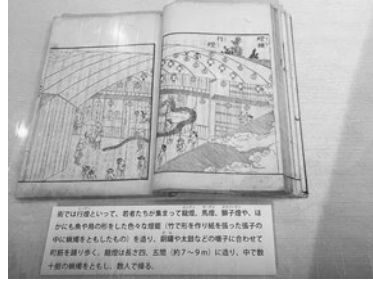 行燈
街では行燈といって、若者たちが集まって龍燈、馬燈、獅子燈や、ほ
かにも魚や鳥の形をした色々な燈籠（竹で形を作り紙を張った張子の
中に蝋燭をともしたもの）を造り、銅鑼や太鼓などの囃子に合わせて
町筋を踊り歩く。龍燈は長さ四、五間（約７〜９ｍ）に造り、中で数
十挺の蝋燭をともし、数人で操る。